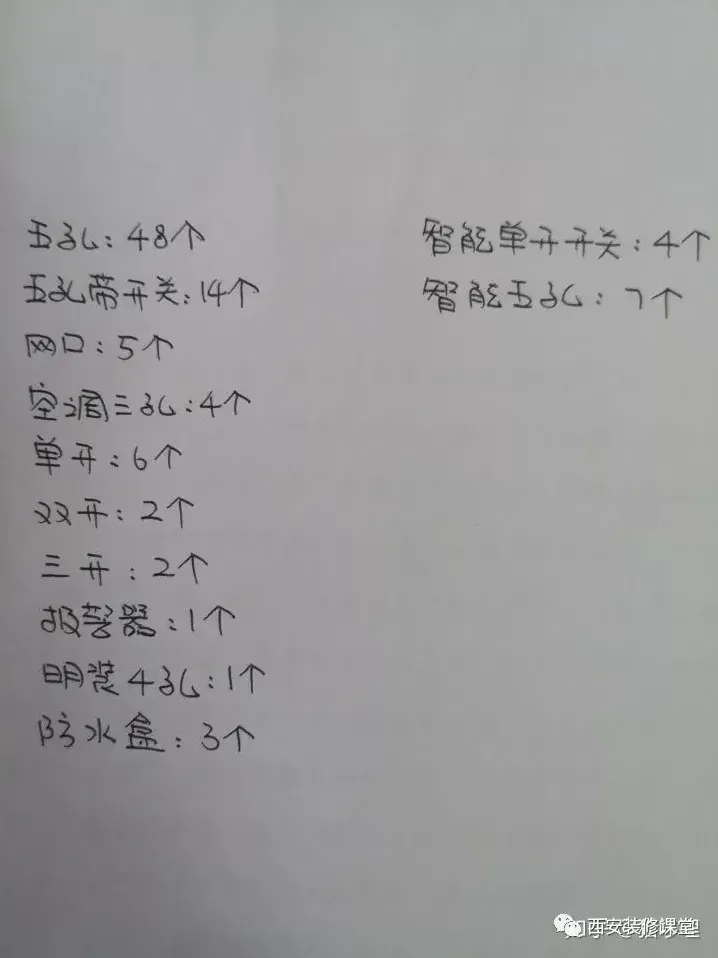 五孔：48个
五孔带开关：14个
网口：5个
空调三孔：4个
单开：6个
双开：2个
三开：2个
报警器：1个
明装4孔：1个
防水盒：3个
智能单开开关：4个
智能五孔：7个
西安装修课堂
知乎